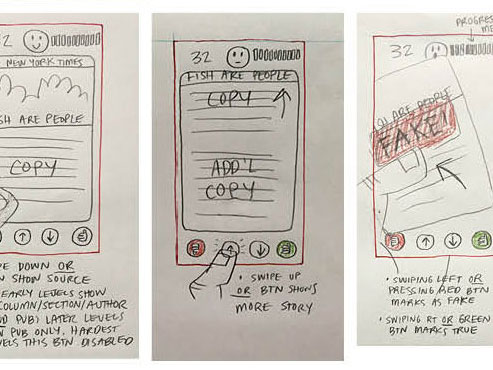 32
NEW YORK TIMES
SH ARE PEOPLE
COPY
PE DOWN OR
N SHOW SOURCE
EARLY LEVELS SHOW
COLUMN/SECTION/AUTHOR
PUB; LATER LEVELS
PUB ONLY. HARDEST
VELS THIS BTN DISABLED
32
FISH ARE PEOPLE
COPY
ADD'L
COPY
• SWIPE UP
OR BTN SHOWS
MORE STORY
PROGRES
ME
32
ARE PEOPLE
FAKE!
• SWIPING LEFT OR
PRESSING RED BTN
MARKS AS FAKE
• SWIPING RT OR GREEN
BTN MARKS TRUE